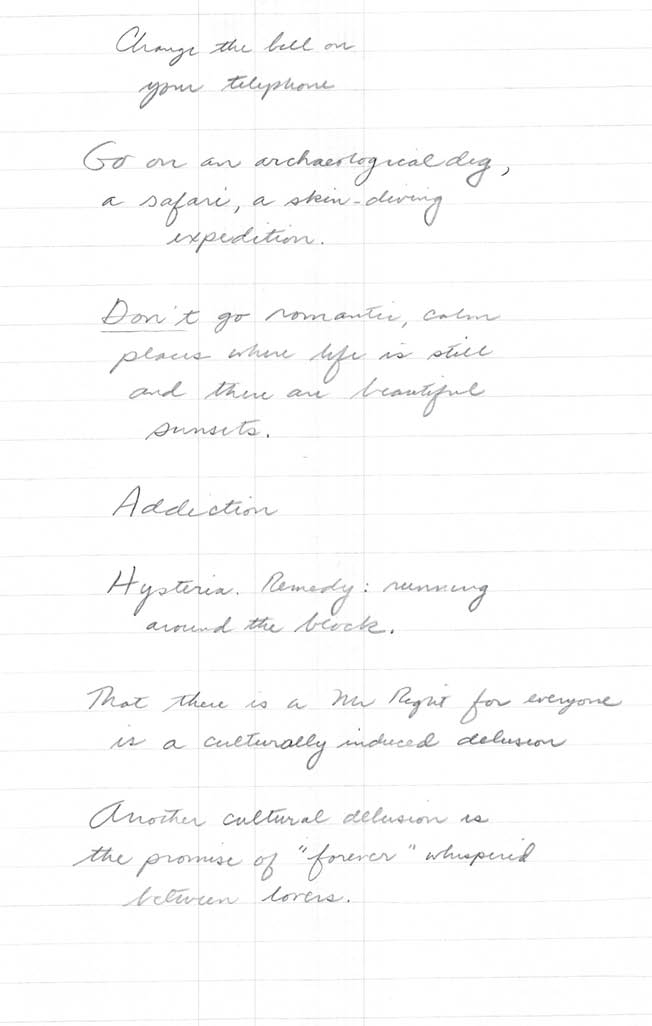 Change the bell on
your telephone
Go on an archaeological dig,
a safari, a skin-diving
expedition.
Don't go romantic, calm
places where life is still
and there are beautiful
sunsets.
Addiction
Hysteria. Remedy: running
around the block.
That there is a Mr Right for everyone
is a culturally induced delusion
Another cultural delusion is
the promise of "forever" whispered
between lovers.